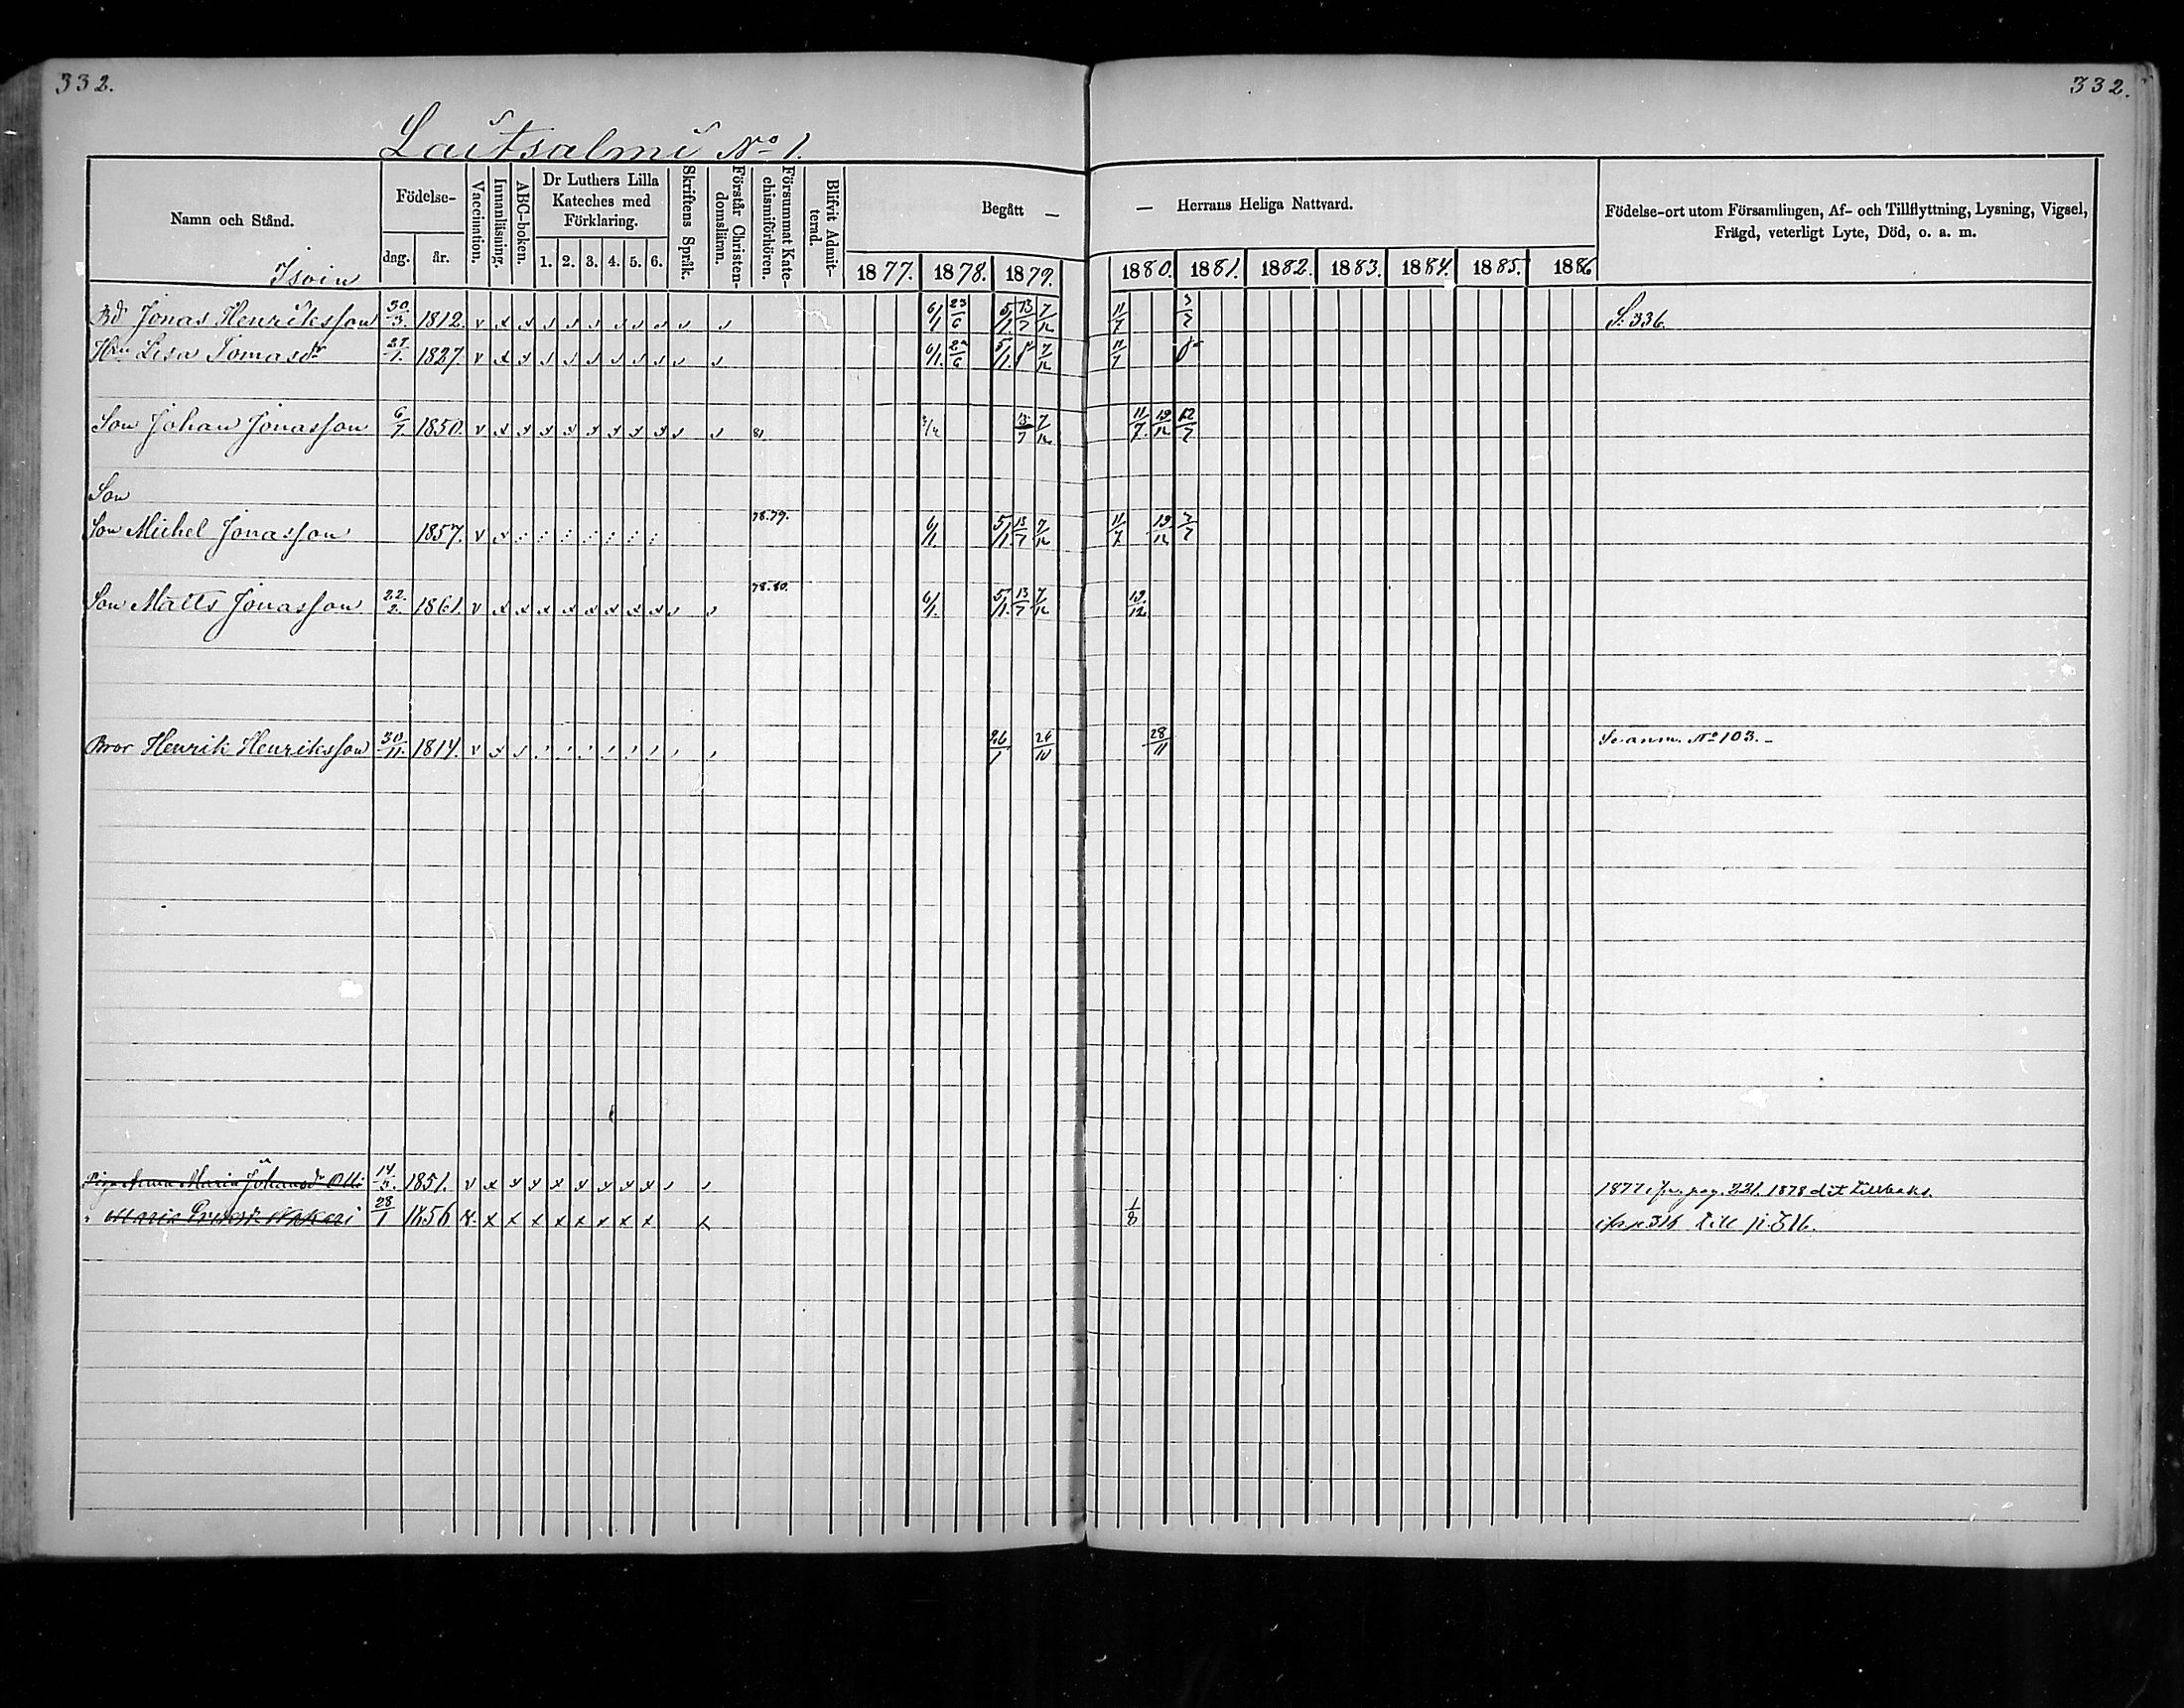 332.
332.
Laitsalmi No 1.
Namn och Stånd.
Födelse-
dag.
år.
Vaccination.
Innanläsning.
ABC-boken.
Dr Luthers Lilla
Kateches med
Förklaring.
1. 2. 3. 4. 5. 6.
Skriftens Språk.
Förstår Christen-
domsläran.
Försummat Kate-
chismiförhören.
Blifvit Admit-
terad.
Begått —
— Herrans Heliga Nattvard.
1877. 1878. 1879.
1880. 1881. 1882. 1883. 1884. 1885. 1886
Födelse-ort utom Församlingen, Af- och Tillflyttning, Lysning, Vigsel,
Frägd, veterligt Lyte, Död, o. a. m.
Isoin
Bd Jonas Henriksson 30/3. 1812. v 6/1 23/6 5/1. 13/7 7/12 11/7 3/7 S. 336.
Hu Lisa Tomasdr 1827. v 6/1. 5/1. 7/12 11/7
Son Johan Jonasson 1850. v 81 13/7 7/12 11/7. 19/12 12/7
Son
Son Michel Jonasson 1857. v 78.79. 6/1. 5/1. 13/7 7/12 11/7 19/12 3/7
Son Matts Jonasson 22./2. 1861. v 78.80. 6/1. 5/1. 13/7 7/12 19/12
Bror Henrik Henriksson 30/11. 1814. v 26/10 28/11 Se anm. No 103.
Piga Anna Maria Johansdr Olli 14/3. 1851. v 1877 pag. 221. 1878 dit tillbaks.
" Maria 28/1 1856 x 1/8 316 till p. 516.